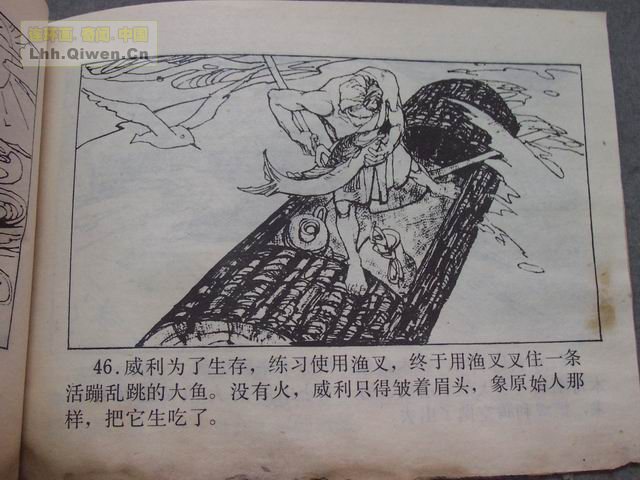 连环画.奇闻.中国
Lhh.Qiwen.Cn
46.威利为了生存，练习使用渔叉，终于用渔叉叉住一条
活蹦乱跳的大鱼。没有火，威利只得皱着眉头，象原始人那
样，把它生吃了。